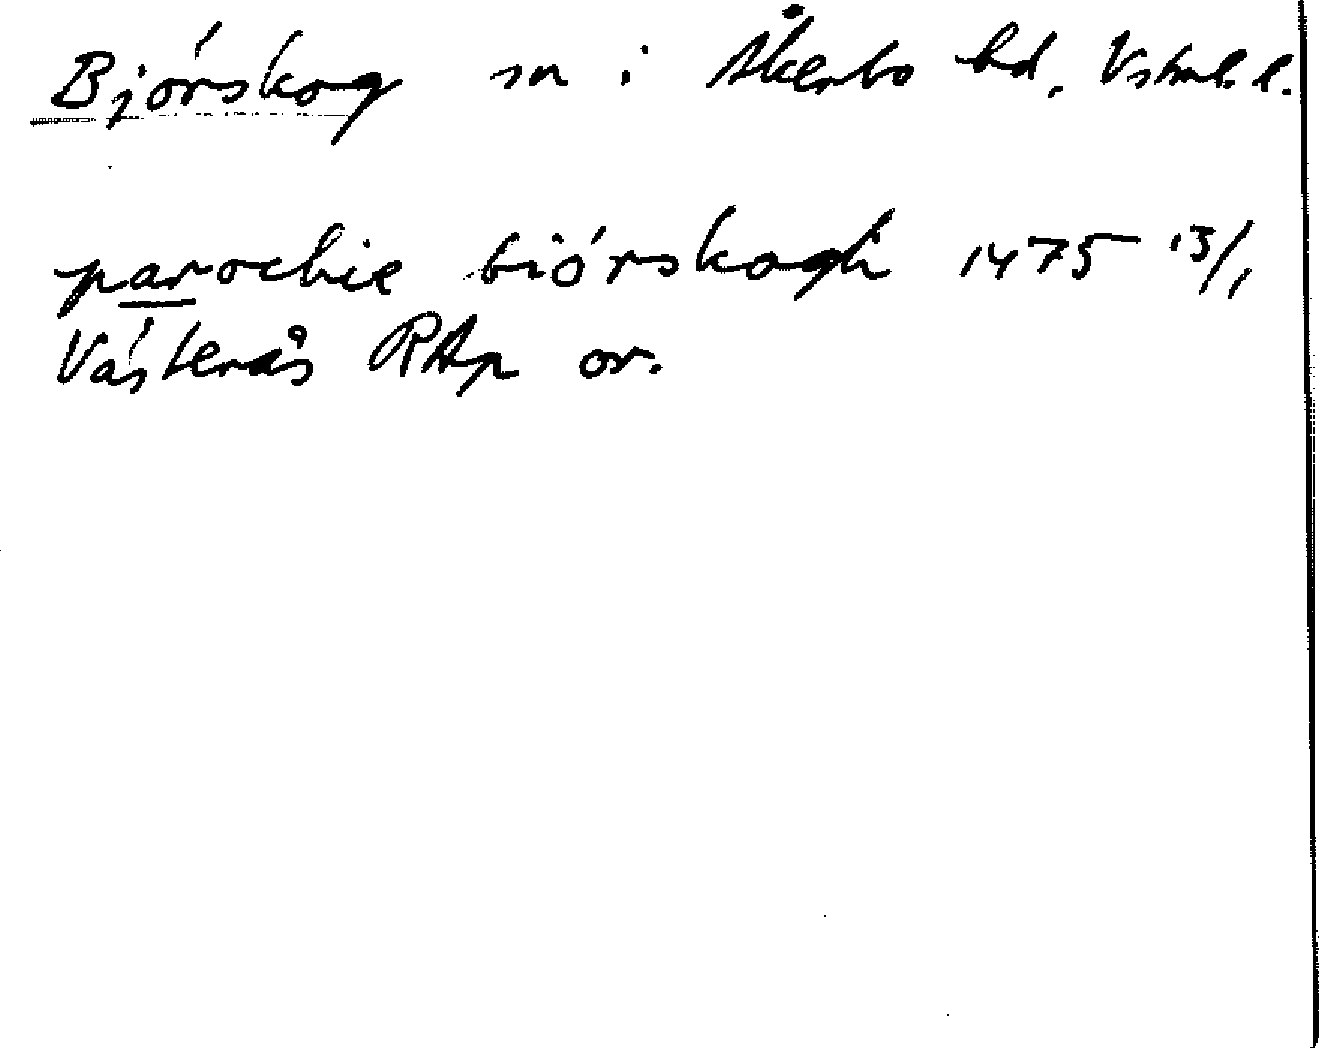 Björskog sn i Åkerbo hd, Vstml. l.
parochie biörskogh 1475 13/1
Västerås RAp or.